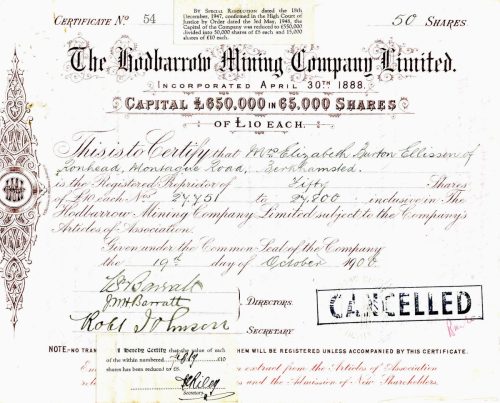 CERTIFICATE No 54
50 SHARES
By Special Resolution dated the 18th
December, 1947, confirmed in the High Court of
Justice by Order dated the 3rd May, 1948, the
Capital of the Company was reduced to £550,000
divided into 50,000 shares of £8 each and 15,000
shares of £10 each.
The Hodbarrow Mining Company Limited.
INCORPORATED APRIL 30TH 1888.
CAPITAL £650.000 IN 65.000 SHARES
OF £10 EACH.
This is to Certify that Mrs Elizabeth Burton Ellissen of
Montague Road, Berkhamsted.
is the Registered Proprietor of Fifty Shares
of £10 each Nos 27,751 to 27,800 inclusive in The
Hodbarrow Mining Company Limited subject to the Company's
Articles of Association.
Given under the Common Seal of the Company
the 19th day of October 1900
Wm Barratt
JWH Barratt
DIRECTORS.
CANCELLED
Robt Johnson
SECRETARY
NOTE.-NO TRAN
HEM WILL BE REGISTERED UNLESS ACCOMPANIED BY THIS CERTIFICATE.
I Hereby Certify that the value of each
of the within numbered £10
shares has been reduced to £8.
Secretary
extract from the Articles of Association
and the Admission of New Shareholders.